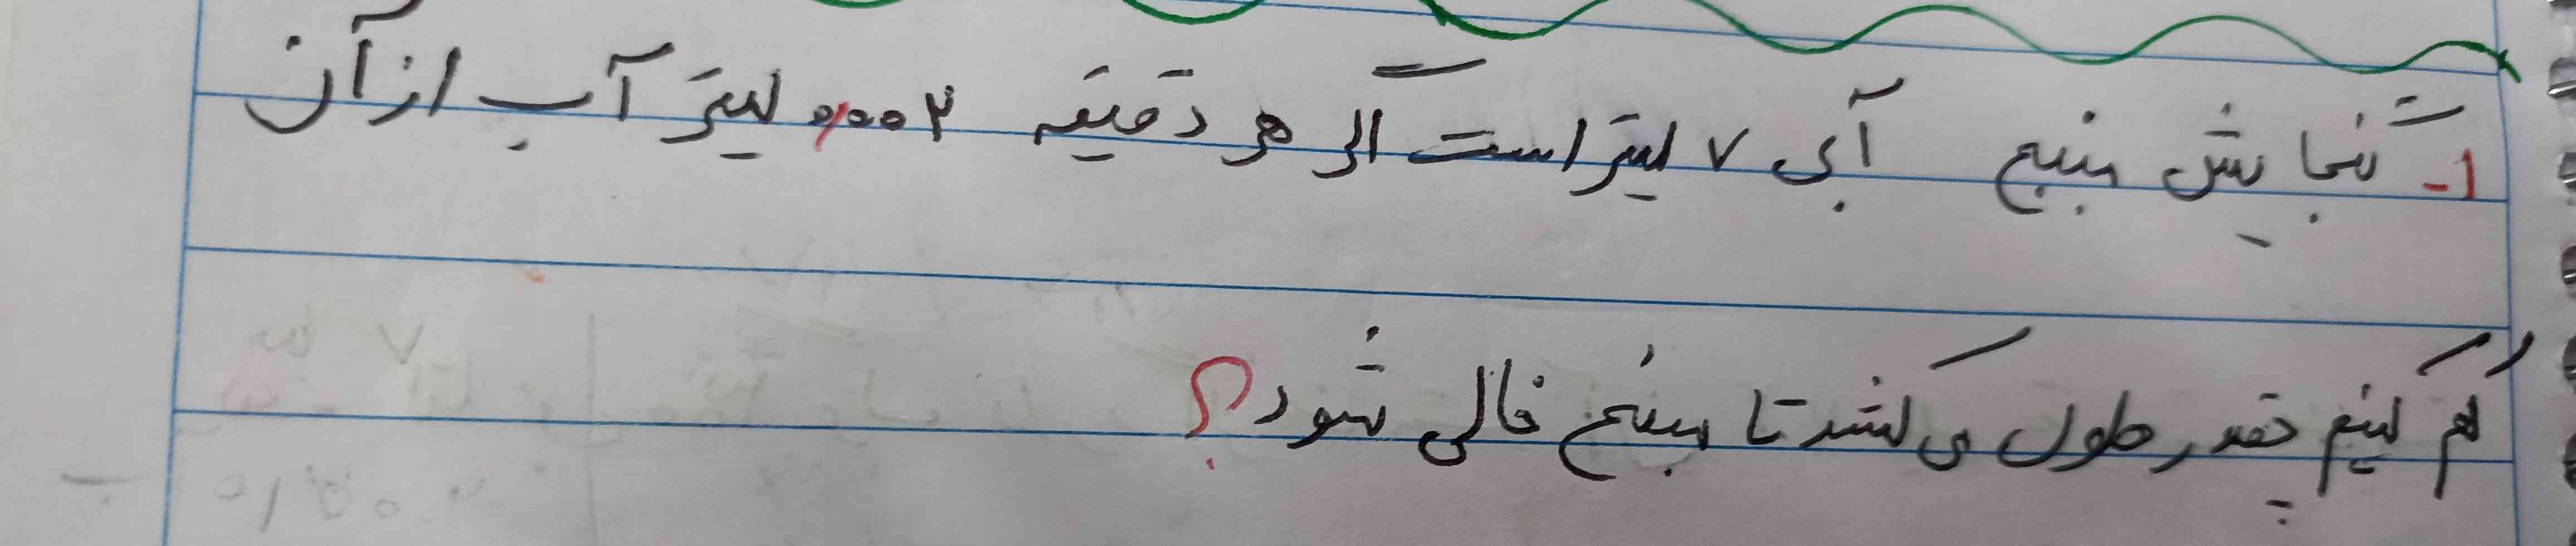 ۱- گنجایش منبع آبی ۷ لیتر است اگر هر دقیقه ۰/۰۰۲ لیتر آب از آن
کم کنیم چقدر طول می کشد تا منبع خالی شود؟